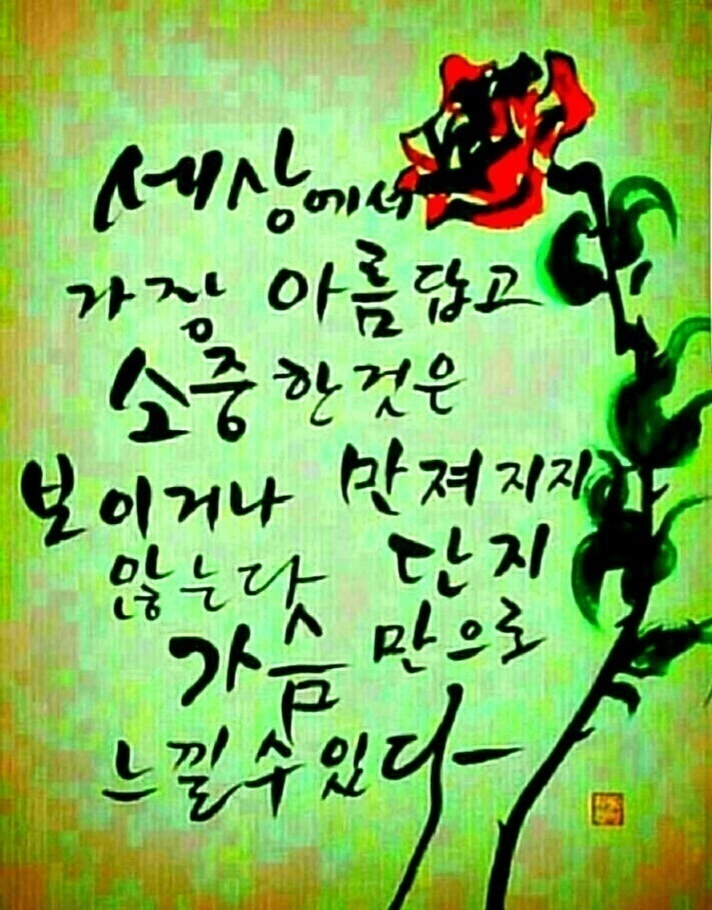 세상에서
가장 아름답고
소중한것은
보이거나 만져지지
않는다 단지
가슴만으로
느낄수있다